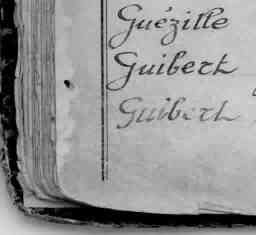 Guézille
Guibert
Guibert